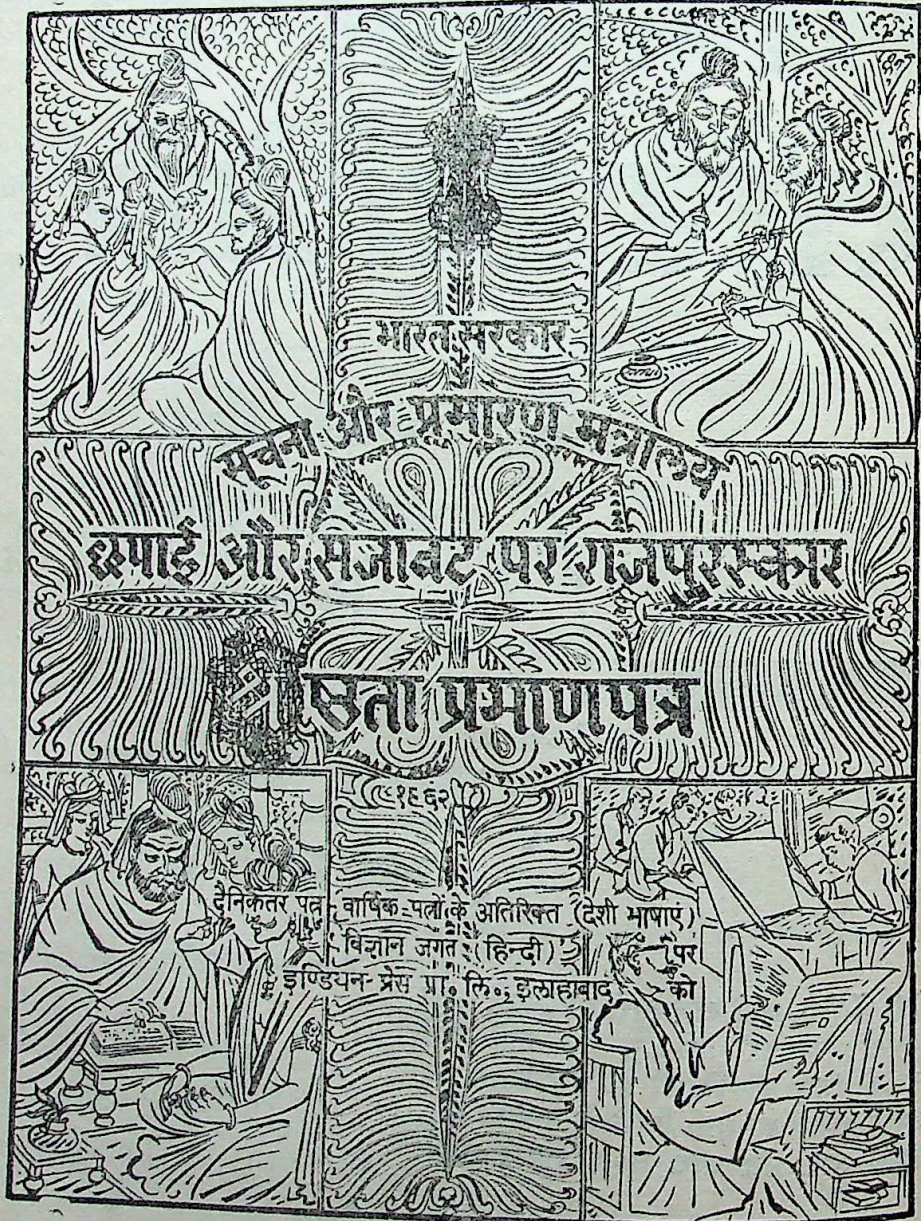 भारत सरकार
सूचना और प्रसारण मंत्रालय
छपाई और सजावट पर राजपुरस्कार
श्रेष्ठता प्रमाणपत्र
१९६२
दैनिकेतर पत्र वार्षिक-पत्रों के अतिरिक्त (देशी भाषाएं)
विज्ञान जगत (हिन्दी) पर
इण्डियन-प्रेस प्रा॰ लि॰, इलाहाबाद को